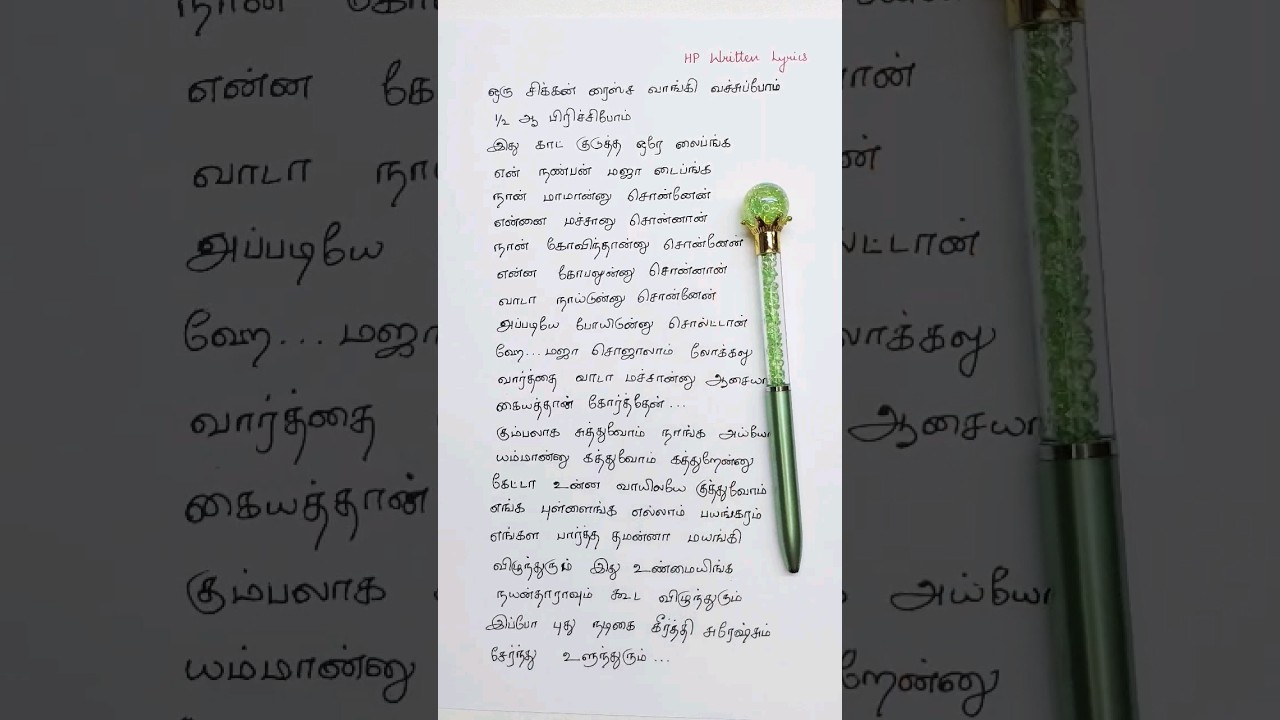 HP Written Lyrics
ஒரு சிக்கன் ரைஸ்ச வாங்கி வச்சுப்போம்
1/2 ஆ பிரிச்சிபோம்
இது காட் குடுத்த ஒரே லைப்ங்க
என் நண்பன் மஜா டைப்ங்க
நான் மாமான்னு சொன்னேன்
என்னை மச்சானு சொன்னான்
நான் கோவிந்தான்னு சொன்னேன்
என்ன கோபலுன்னு சொன்னான்
வாடா நாய்டுன்னு சொன்னேன்
அப்படியே போயிடுன்னு சொல்ட்டான்
ஹே... மஜா சொஜாலாம் லோக்கலு
வார்த்தை வாடா மச்சான்னு ஆசையா
கையத்தான் கோர்த்தேன்...
கும்பலாக சுத்துவோம் நாங்க அய்யோ
யம்மான்னு கத்துவோம் கத்துறேன்னு
கேட்டா உன்ன வாயிலயே குத்துவோம்
எங்க புள்ளைங்க எல்லாம் பயங்கரம்
எங்கள பார்த்த தமன்னா மயங்கி
விழுந்துரும் இது உண்மையிங்க
நயன்தாராவும் கூட விழுந்துரும்
இப்போ புது நடிகை கீர்த்தி சுரேஷ்சும்
சேர்ந்து உளுந்துரும்...